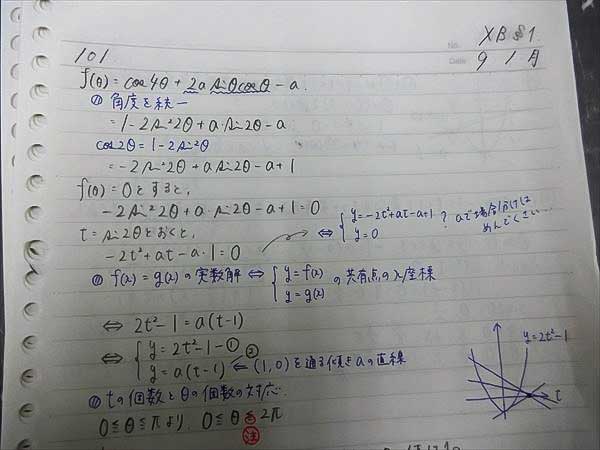 XB §1
No.
Date 9 / 月
101
f(θ) = cos4θ + 2a sinθcosθ - a
① 角度を統一
= 1 - 2sin²2θ + a・sin2θ - a
cos2θ = 1 - 2sin²θ
= -2sin²2θ + a sin2θ - a + 1
f(θ) = 0とすると,
-2sin²2θ + a・sin2θ - a + 1 = 0
t = sin2θとおくと,
-2t² + at - a・1 = 0
⇔ { y = -2t² + at - a + 1
y = 0
? aで場合分けは
めんどくさい…
f(x) = g(x) の実数解 ⇔ { y = f(x)
y = g(x)
の共有点のx座標
⇔ 2t² - 1 = a(t - 1)
⇔ { y = 2t² - 1 - ①
y = a(t - 1) ②
← (1, 0) を通る傾きaの直線
y = 2t² - 1
t
tの個数とθの個数の対応
0 ≦ θ ≦ π より, 0 ≦ θ ≦ 2π
注